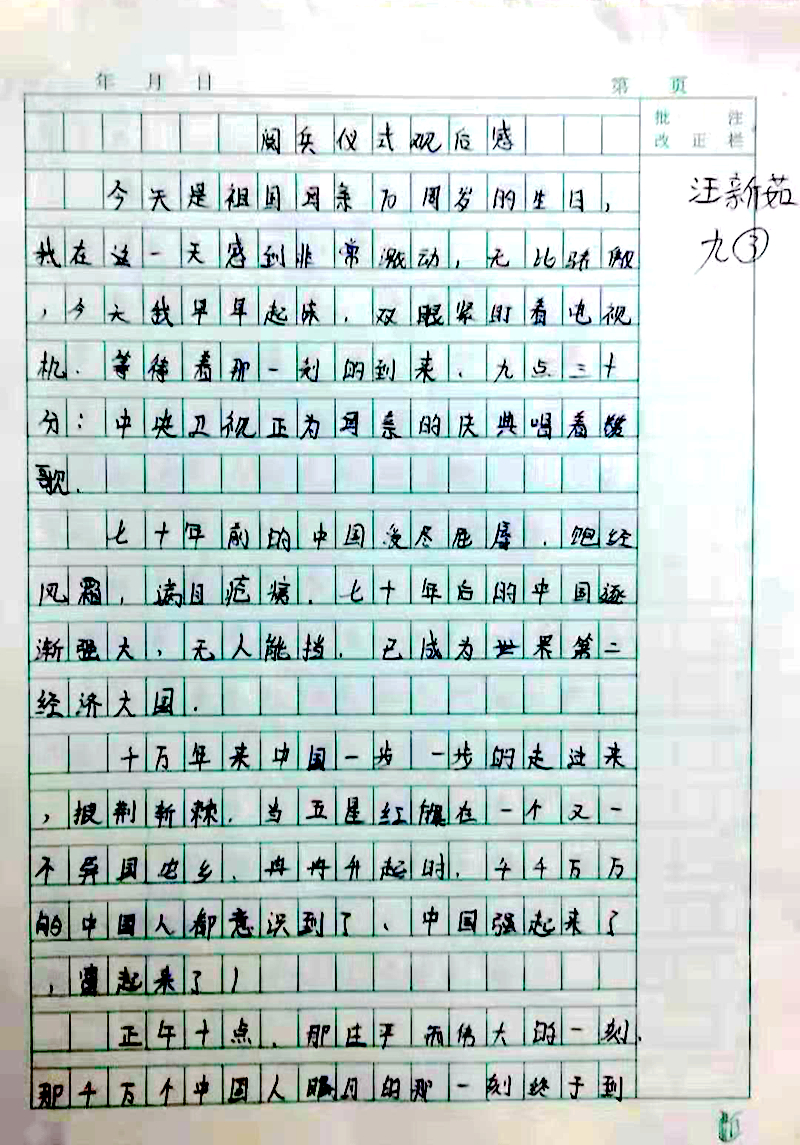 年 月 日 第 页
批注
改正栏
阅兵仪式观后感
汪新茹
九③
今天是祖国母亲70周岁的生日，
我在这一天感到非常激动，无比骄傲
，今天我早早起床，双眼紧盯着电视
机．等待着那一刻的到来．九点三十
分：中央卫视正为母亲的庆典唱着赞
歌．
七十年前的中国受尽屈辱．饱经
风霜，满目疮痍．七十年后的中国逐
渐强大，无人能挡．已成为世界第二
经济大国．
十万年来中国一步一步的走过来
，披荆斩棘．当五星红旗在一个又一
个异国他乡．冉冉升起时．千千万万
的中国人都意识到了、中国强起来了
，富起来了！
正午十点．那庄严而伟大的一刻．
那千万个中国人瞩目的那一刻终于到